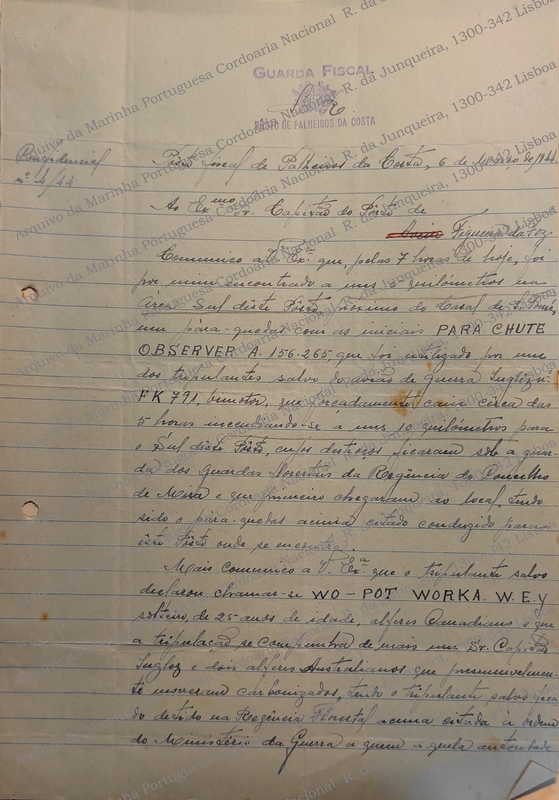 GUARDA FISCAL
POSTO DE PALHEIROS DA COSTA
Confidencial
nº 2/44
Posto fiscal de Palheiros da Costa, 6 de Março de 1944
Ao Exmo Sr. Capitão do Pôrto de
Aveiro Figueira da Foz
Comunico a V. Exª que, pelas 7 horas de hoje, foi
por mim encontrado a uns 3 quilómetros na
área Sul dêste Pôsto, próximo do Casal de S. Tomé,
um pára-quedas com as iniciais PARA CHUTE
OBSERVER A. 156-265 que foi utilizado por um
dos tripulantes salvo do avião de guerra Inglêz nº
FK 791, bimotor, que forçadamente caiu cêrca das
5 horas incendiando-se a uns 10 quilómetros para
o Sul dêste Pôsto, cujos destroços ficaram sob a guar-
da dos Guardas Florestais da Regência do Concelho
de Mira e que primeiro chegaram ao local, tendo
sido o pára-quedas acima citado conduzido para
êste Pôsto onde se encontra.
Mais comunico a V. Exª que o tripulante salvo
declarou chamar-se WO - POT WORKA. W. E. y
solteiro, de 25 anos de idade, alferes Canadiano e que
a tripulação se compunha de mais um Sr. Capitão
Inglez e dois alferes Australianos que presumivelmen-
te morreram carbonizados, tendo o tripulante salvo fica-
do detido na Regência Florestal acima citada à ordem
do Ministério da Guerra a quem aquela autoridade
Arquivo da Marinha Portuguesa Cordoaria Nacional R. da Junqueira, 1300-342 Lisboa